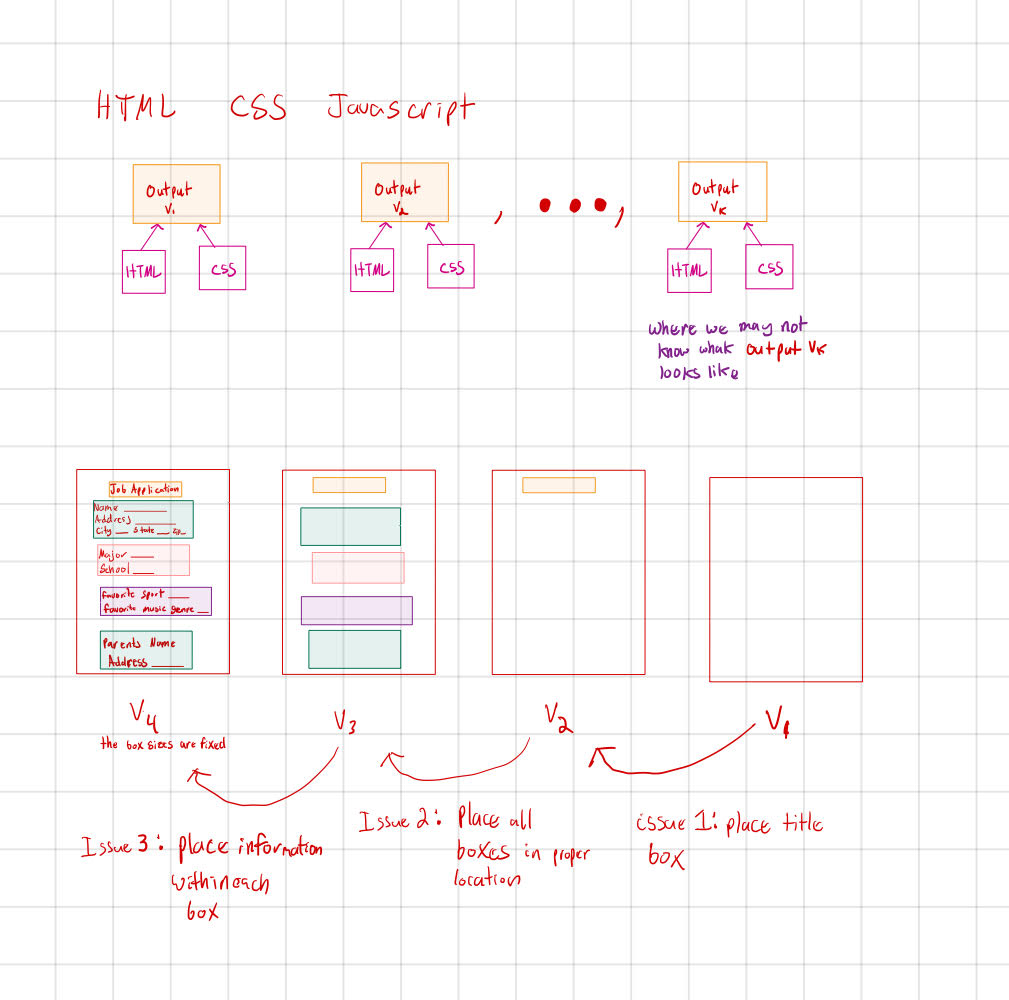 HTML CSS Javascript
Output V1
HTML CSS
Output V2
HTML CSS
, ••• ,
Output VK
HTML CSS
where we may not
know what output VK
looks like
Job Application
Name ____
Address ____
City __ State __ Zip_
Major ___
School ___
favorite sport ___
favorite music genre __
Parents Name
Address ____
V4
the box sizes are fixed
V3
V2
V1
Issue 3: place information
within each
box
Issue 2: Place all
boxes in proper
location
issue 1: place title
box